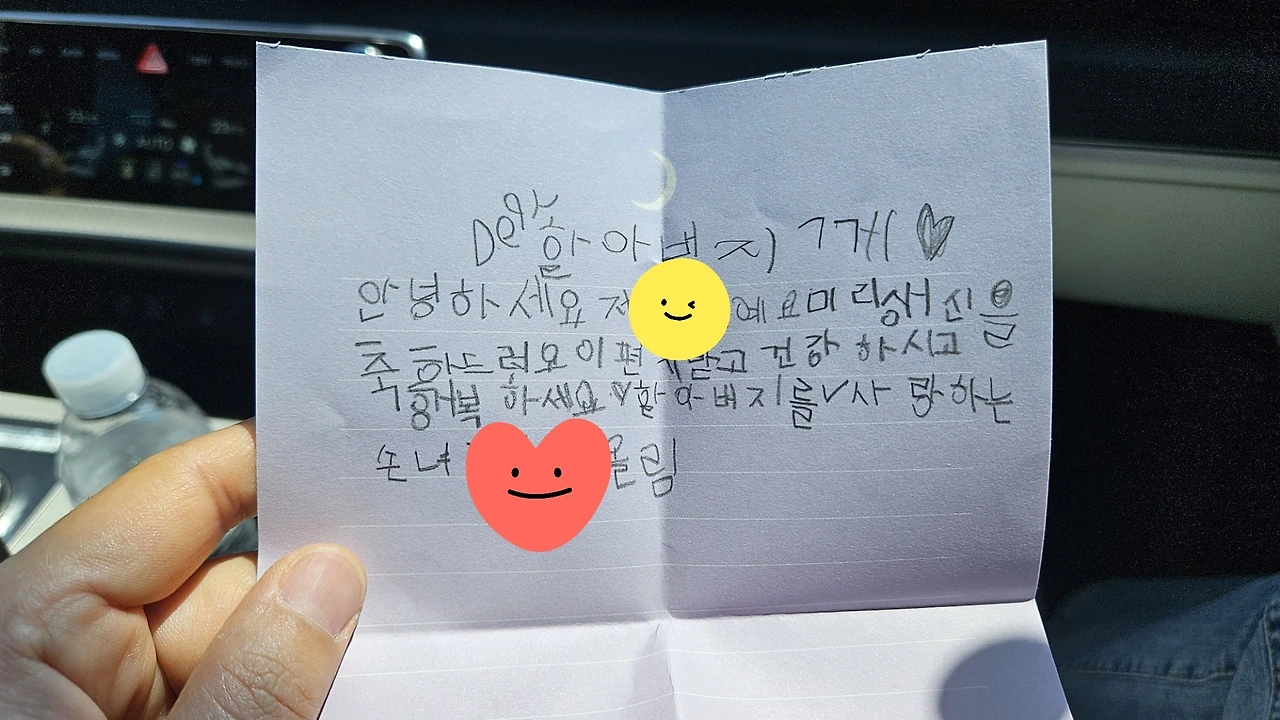 Dear 할아버지 께 ♥
안녕하세요 저 예요 미리생신을
축하드려요 이 편지받고 건강 하시고
행복 하세요 ♥ 할아버지를 ✓ 사랑하는
손녀 올림
AUTO